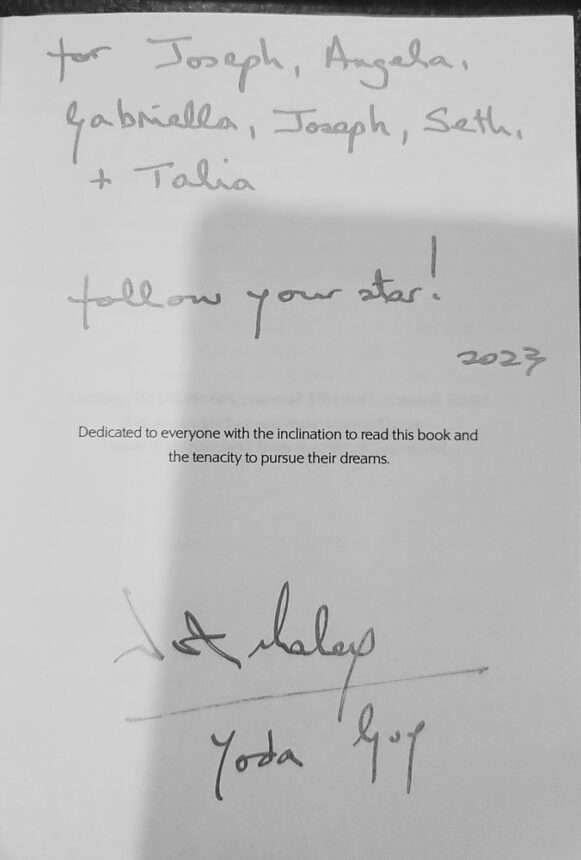 for Joseph, Angela,
Gabriella, Joseph, Seth,
+ Talia
follow your star!
2023
Dedicated to everyone with the inclination to read this book and
the tenacity to pursue their dreams.
Yoda Guy